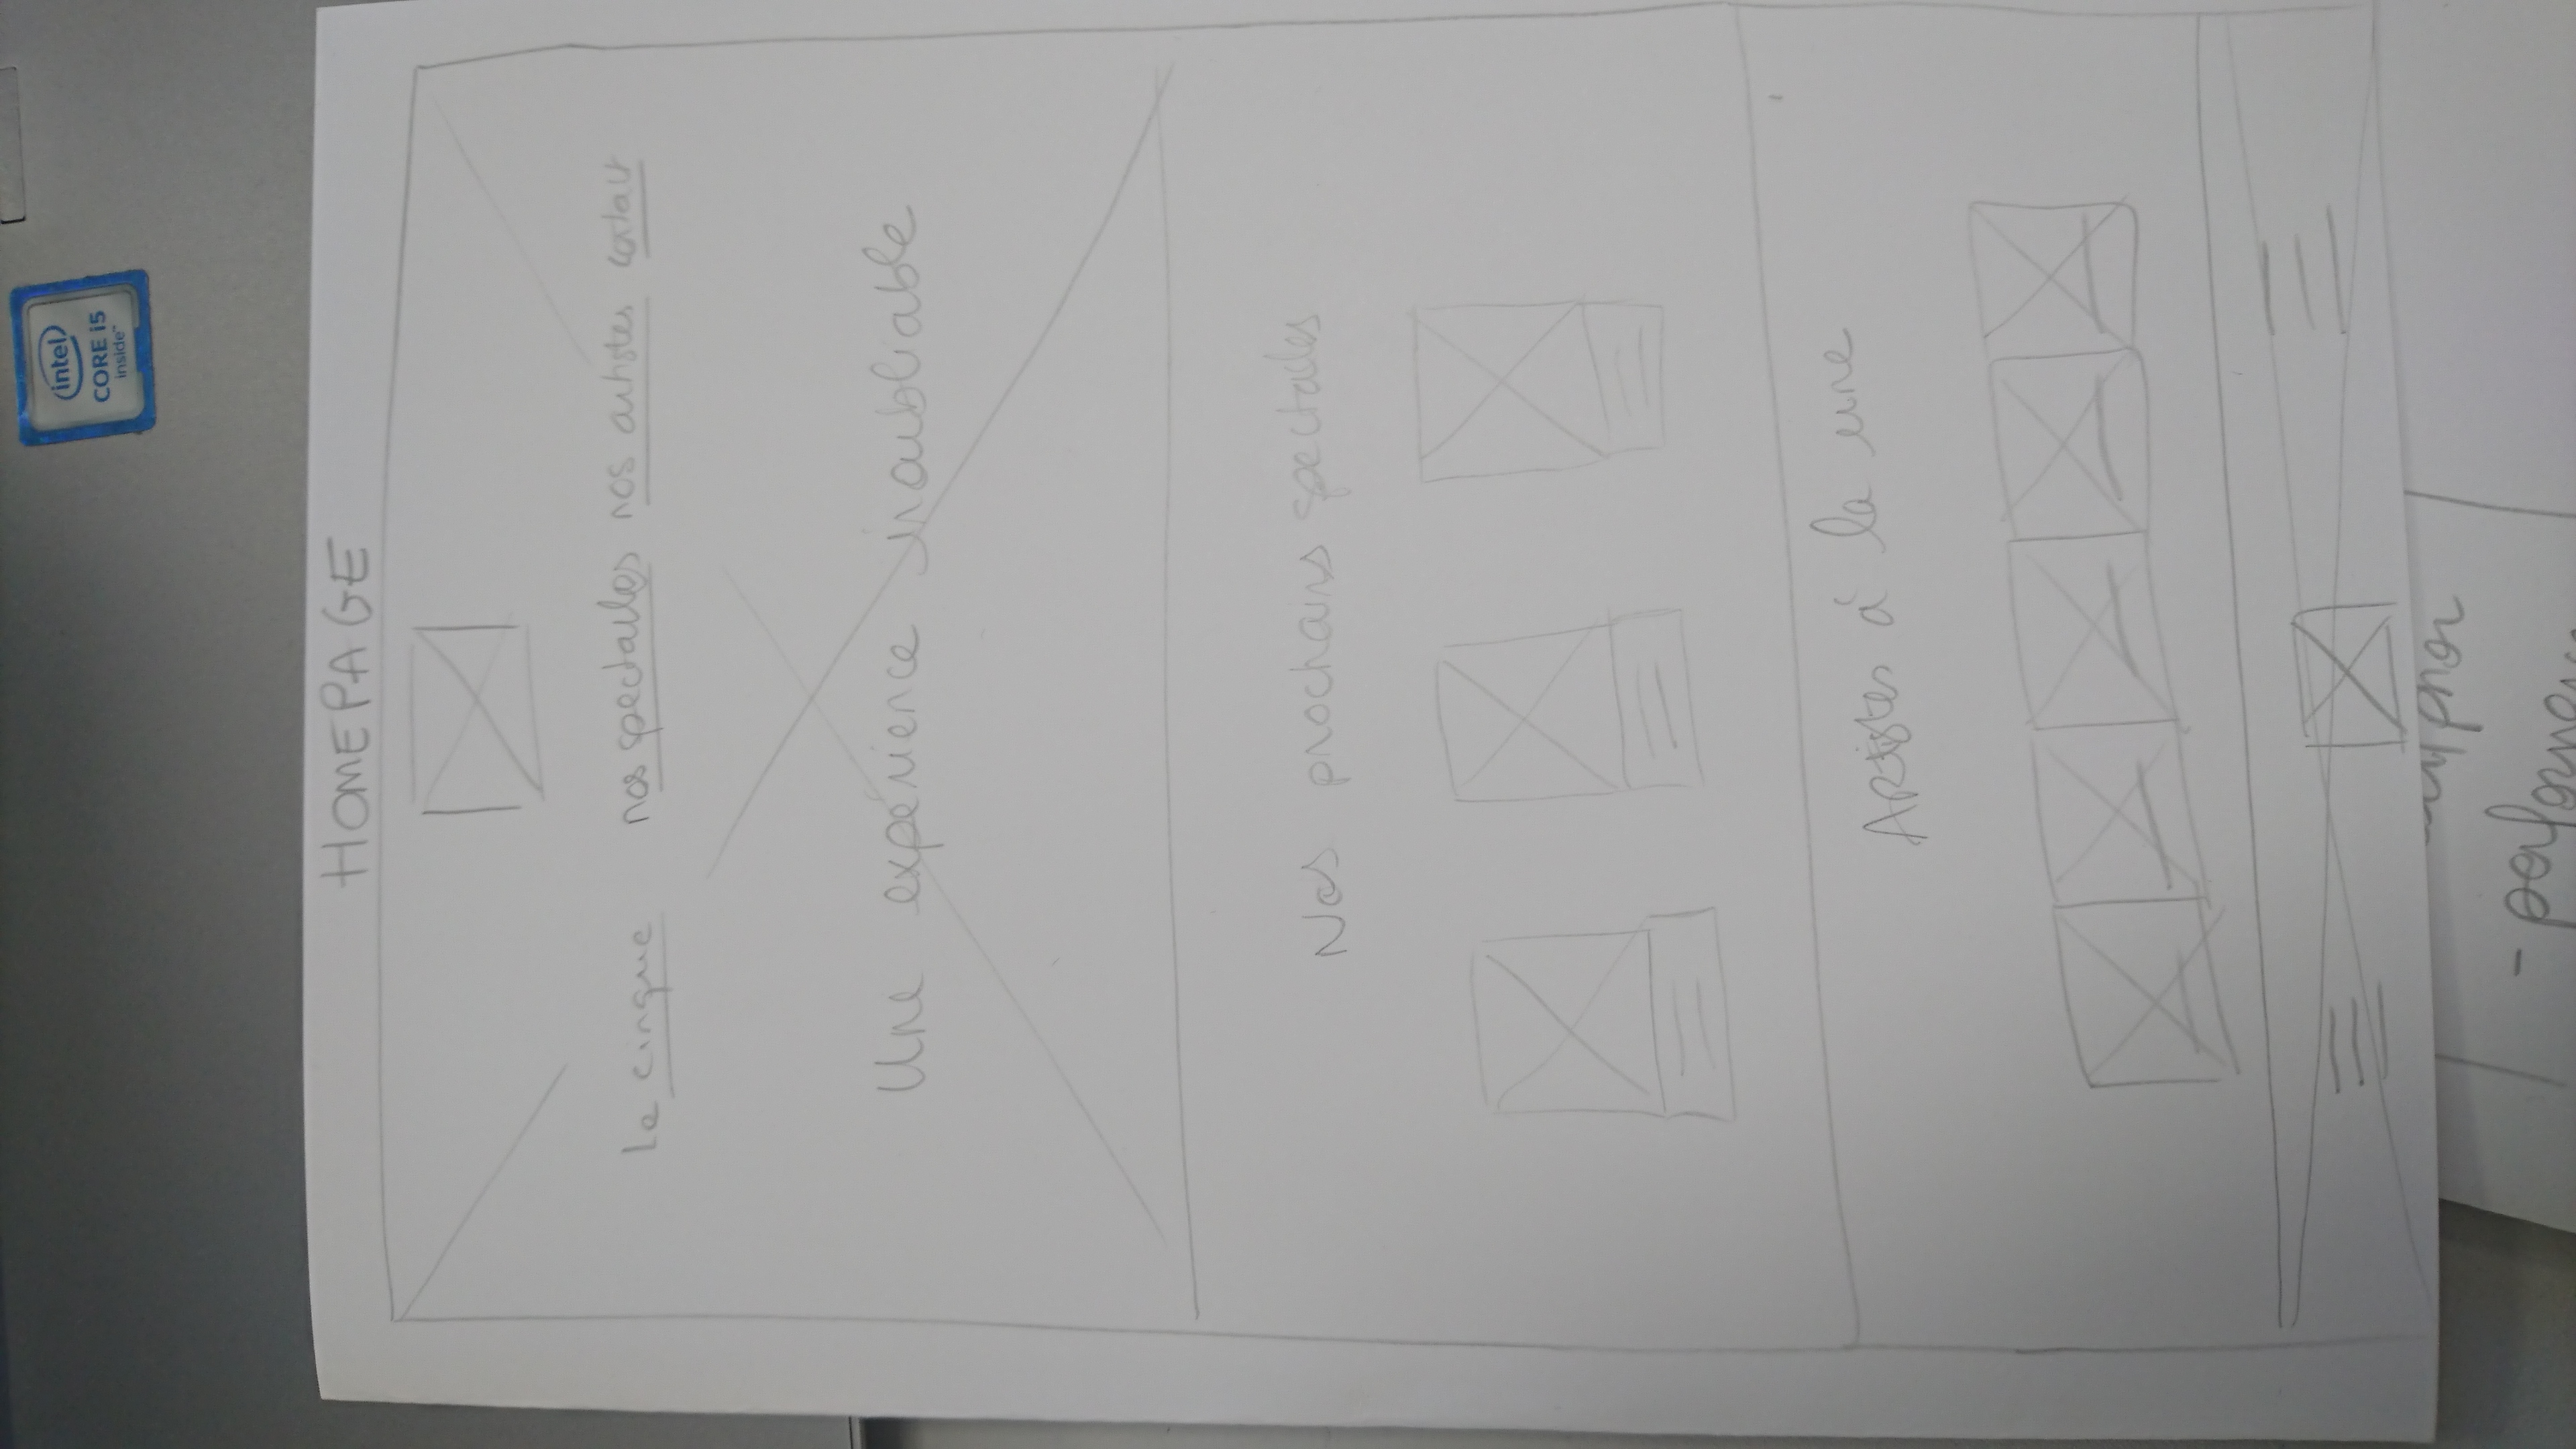 intel
CORE i5
inside™
HOMEPAGE
Le cirque nos spectacles nos artistes contact
Une expérience inoubliable
Nos prochains spectacles
Artistes à la une